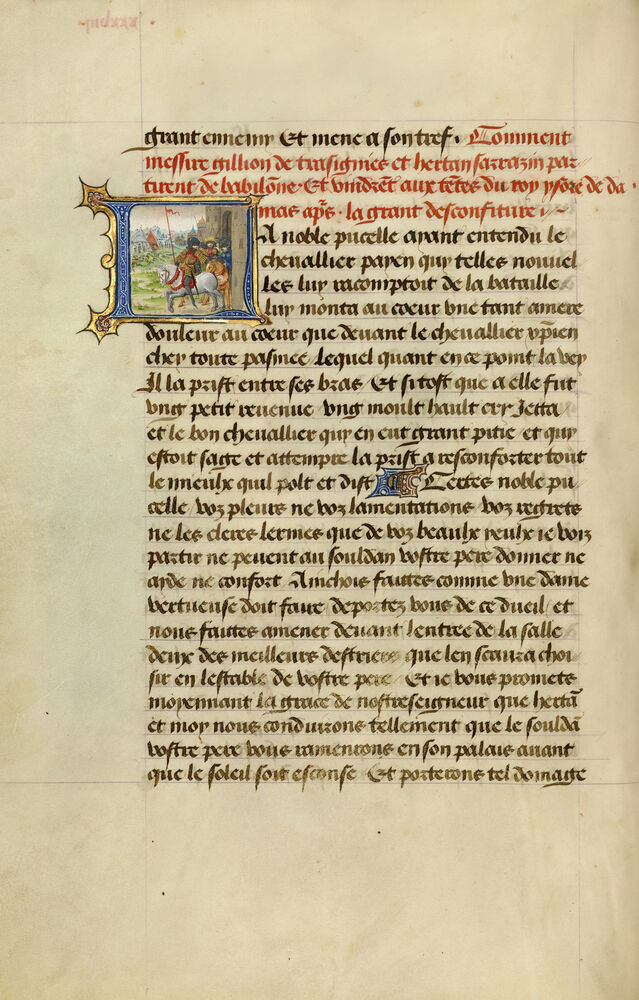 grant ennemy Et mene a son tref. Comment
messire gillion de trasignies et hertan sarrazin par
tirent de babilõne. Et vindrẽt aux tẽtes du roy ysore de da
mas apr̃s. la grant desconfiture.
La noble pucelle ayant entendu le
chevallier payen quy telles nouvel
les luy racomptoit de la bataille
luy monta au coeur une tant amere
douleur au coeur que devant le chevallier xp̃ien
chey toute pasmee / lequel quant en ce point la vey
Il la prist entre ses bras / Et si tost que a elle fut
ung petit revenue / ung moult hault cry Jetta /
et le bon chevallier quy en eut grant pitie et quy
estoit sage et attempre la prist a resconforter tout
le mieulx quil polt et dist Certes noble pu
celle / voz pleurs ne voz lamentations / voz regrets
ne les cleres lermes que de voz beaulx yeulx ie voy
partir ne peuent au souldan vostre pere donner ne
ayde ne confort / Ainchois faittes comme une dame
vertueuse doit faire deportez vous de ce dueil / et
nous faittes amener devant lentree de la salle
deux des meilleurs destriers que len scaura choi
sir en lestable de vostre pere / Et ie vous promets
moyennant la grace de nostreseigneur que hertã
et moy nous conduirons tellement que le souldã
vostre pere vous ramenrons en son palais avant
que le soleil soit esconse / Et porterons tel domage